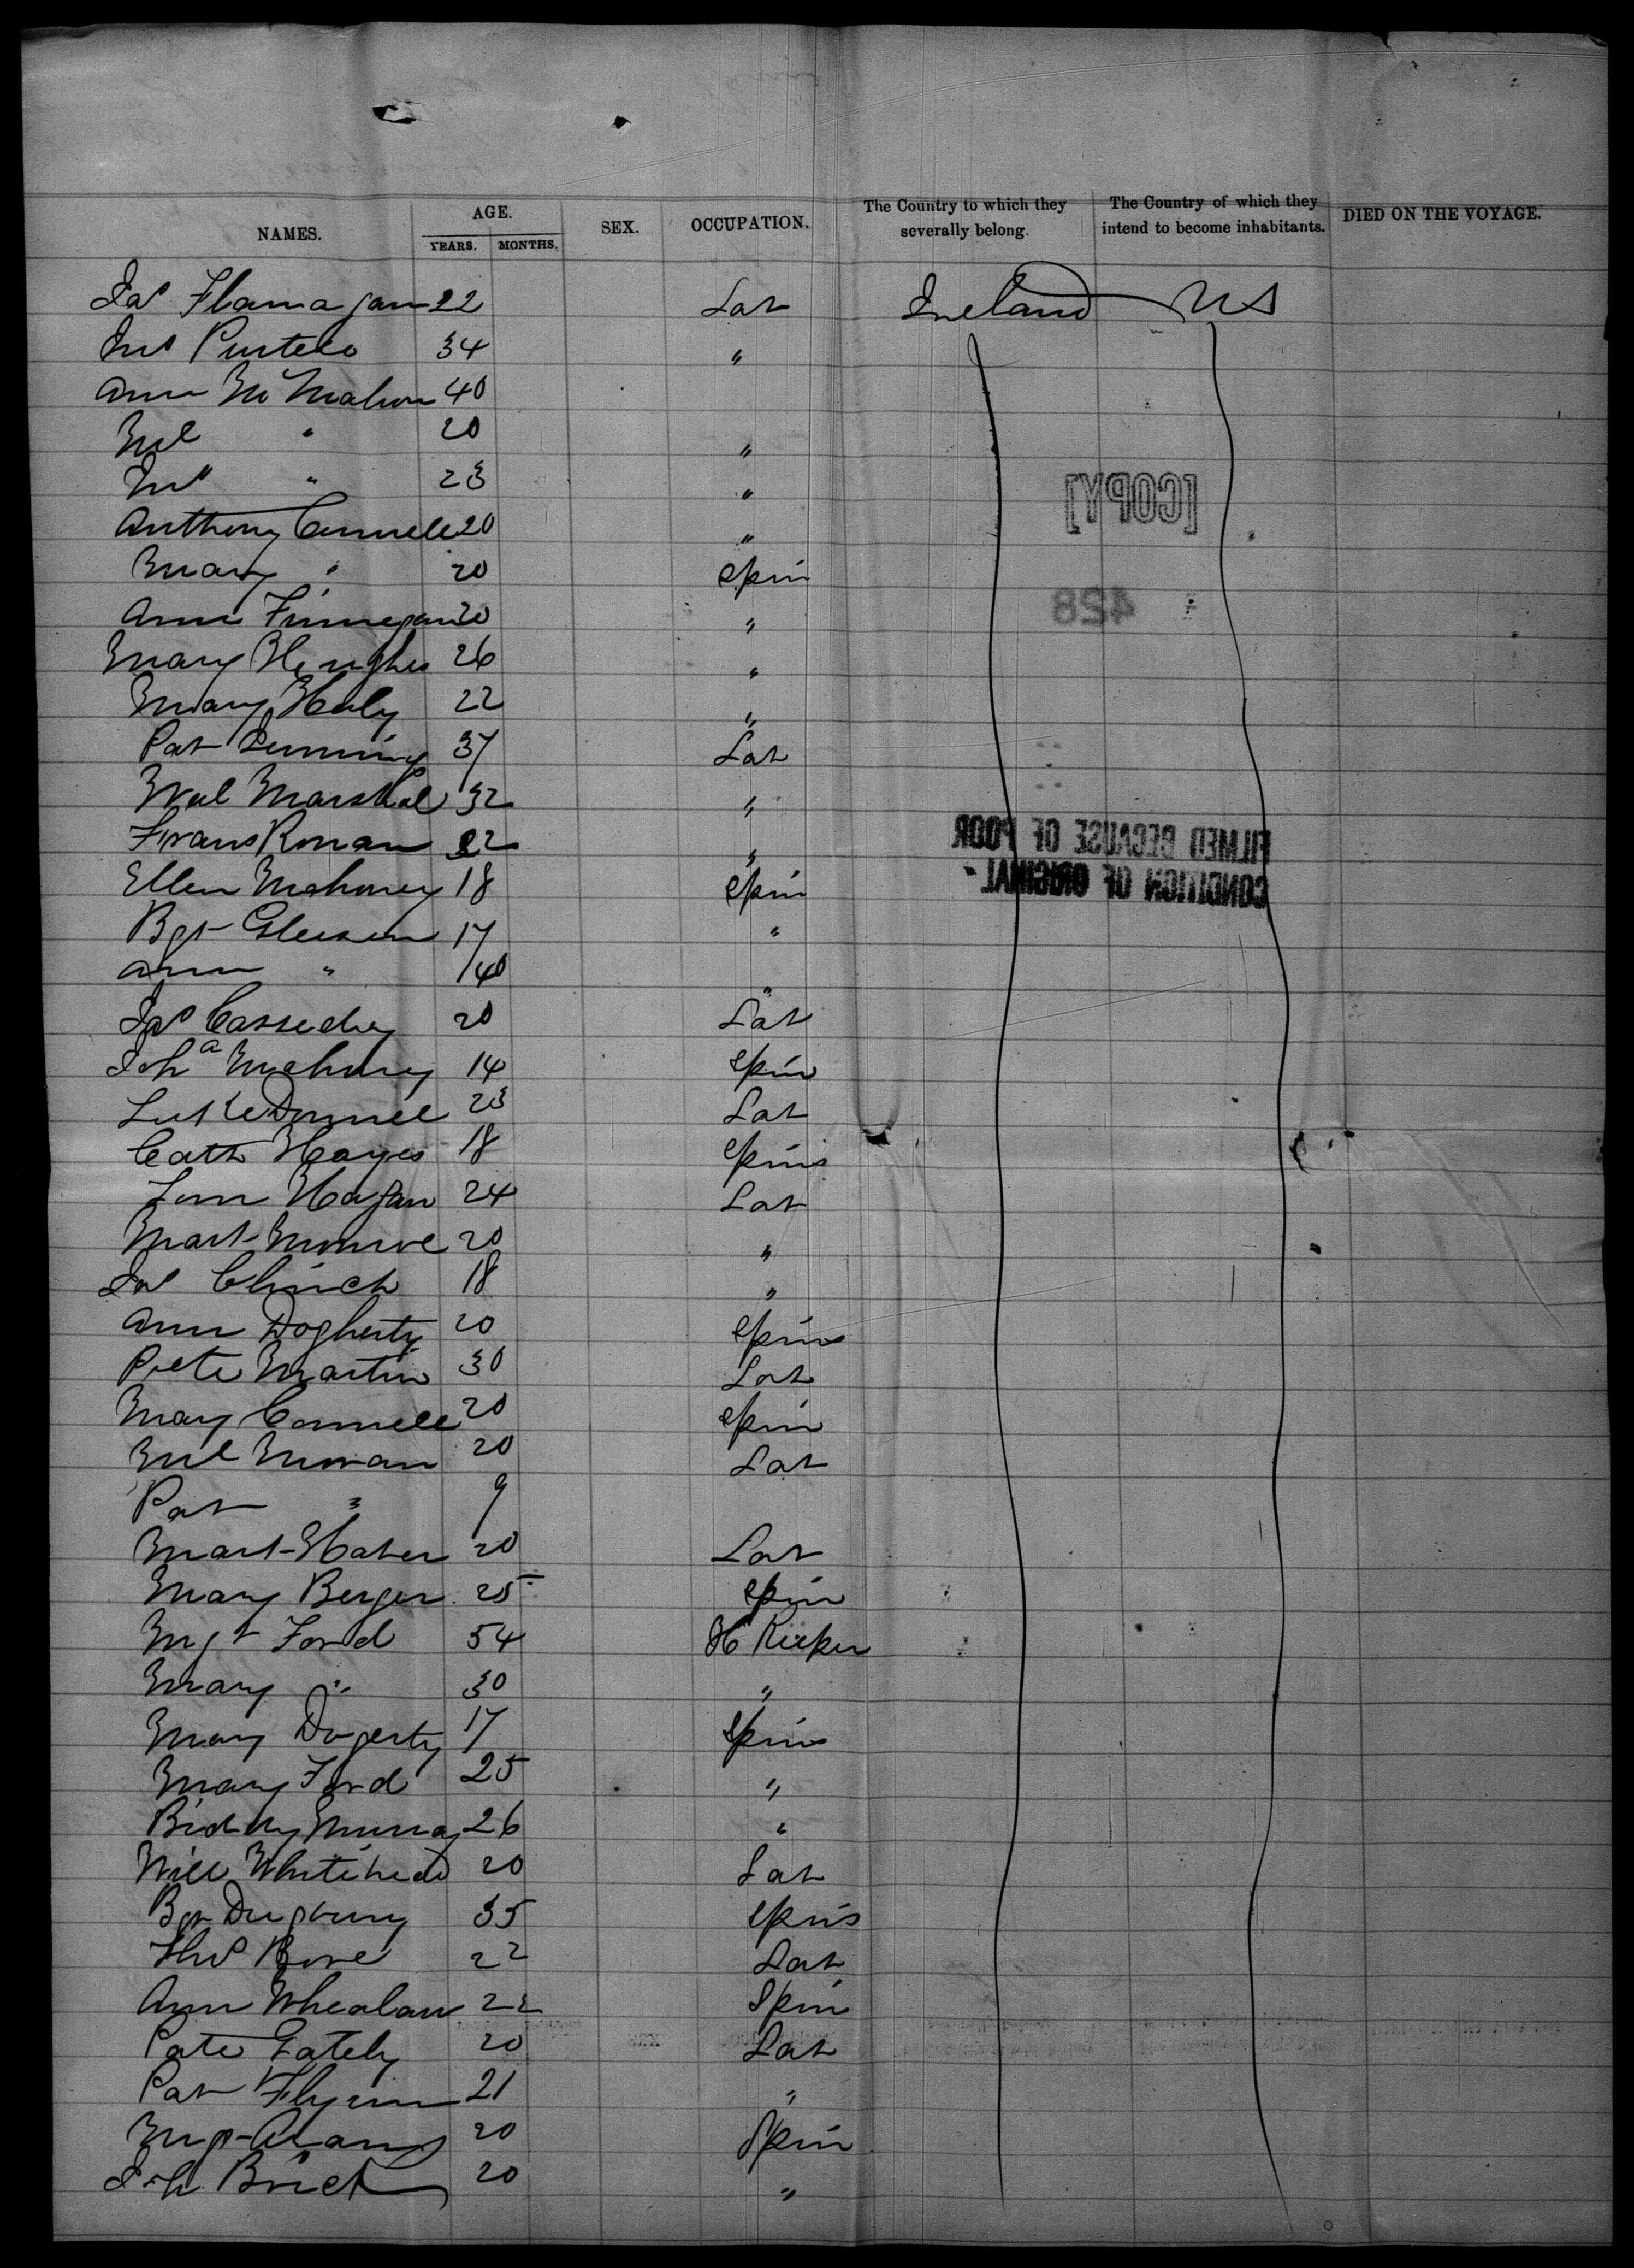 NAMES. AGE. YEARS. MONTHS. SEX. OCCUPATION. The Country to which they severally belong. The Country of which they intend to become inhabitants. DIED ON THE VOYAGE.
Jas Flanagan 22 Lab Ireland US
Jno 34 "
Ann McMahon 40
Ml " 20 "
Jno " 23 "
Anthony Connell 20 "
Mary " 20 Spin
Ann Finnegan 20 "
Mary Hughes 26 "
Mary Healy 22 "
Pat 37 Lab
Marshal 32 "
Frans Ronan 22 "
Ellen Mahoney 18 Spin
Bgt Gleeson 17 "
Ann " 40 "
Jas Cassedy 20 Lab
Joha Mahoney 14 Spin
Luke Donnell 23 Lab
Cath Hayes 18 Spins
Hagan 24 Lab
Mart Monroe 20 "
Jas Clinch 18 "
Ann Dogherty 20 Spins
Pete Martin 30 Lab
Mary Connell 20 Spin
Ml Moran 20 Lab
Pat " 9
Mart 20 Lab
Mary Berger 25 Spin
Mgt Ford 54 H Keeper
Mary " 30 "
Mary Dogerty 17 Spins
Mary Ford 25 "
Biddy Murray 26 "
Will Whitehead 20 Lab
Bgt 35 Spins
Thos 22 Lab
Ann Whealan 22 Spin
Pate Gately 20 Lab
Pat Flynn 21 "
Mgt 20 Spin
Joh 20 "
[COPY]
428
FILMED BECAUSE OF POOR
CONDITION OF ORIGINAL